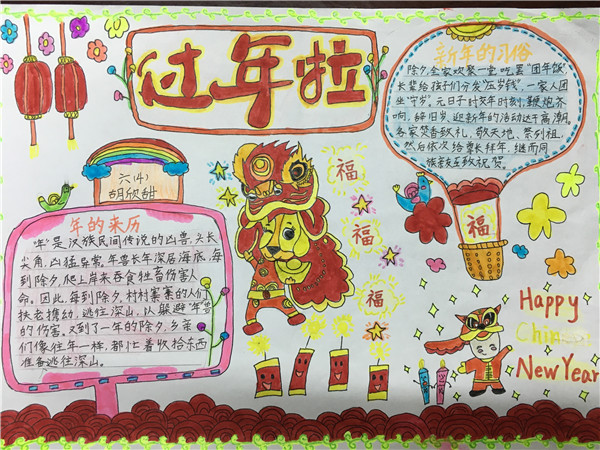 过年啦
新年的习俗
除夕,全家欢聚一堂,吃罢“团年饭”,
长辈给孩子们分发“压岁钱”,一家人团
坐“守岁”。元日子时交年时刻,鞭炮齐
响,辞旧岁、迎新年的活动达于高潮。
各家焚香致礼,敬天地、祭列祖,
然后依次给尊长拜年,继而同
族亲友互致祝贺。
六(4)
胡欣甜
年的来历
“年”是汉族民间传说的凶兽,头长
尖角,凶猛异常,年兽长年深居海底,每
到除夕,爬上岸来吞食牲畜伤害人
命。因此,每到除夕,村村寨寨的人们
扶老携幼,逃往深山,以躲避“年”兽
的伤害。又到了一年的除夕,乡亲
们像往年一样,都忙着收拾东西
准备逃往深山。
福
福
福
福
Happy
Chinese
New Year